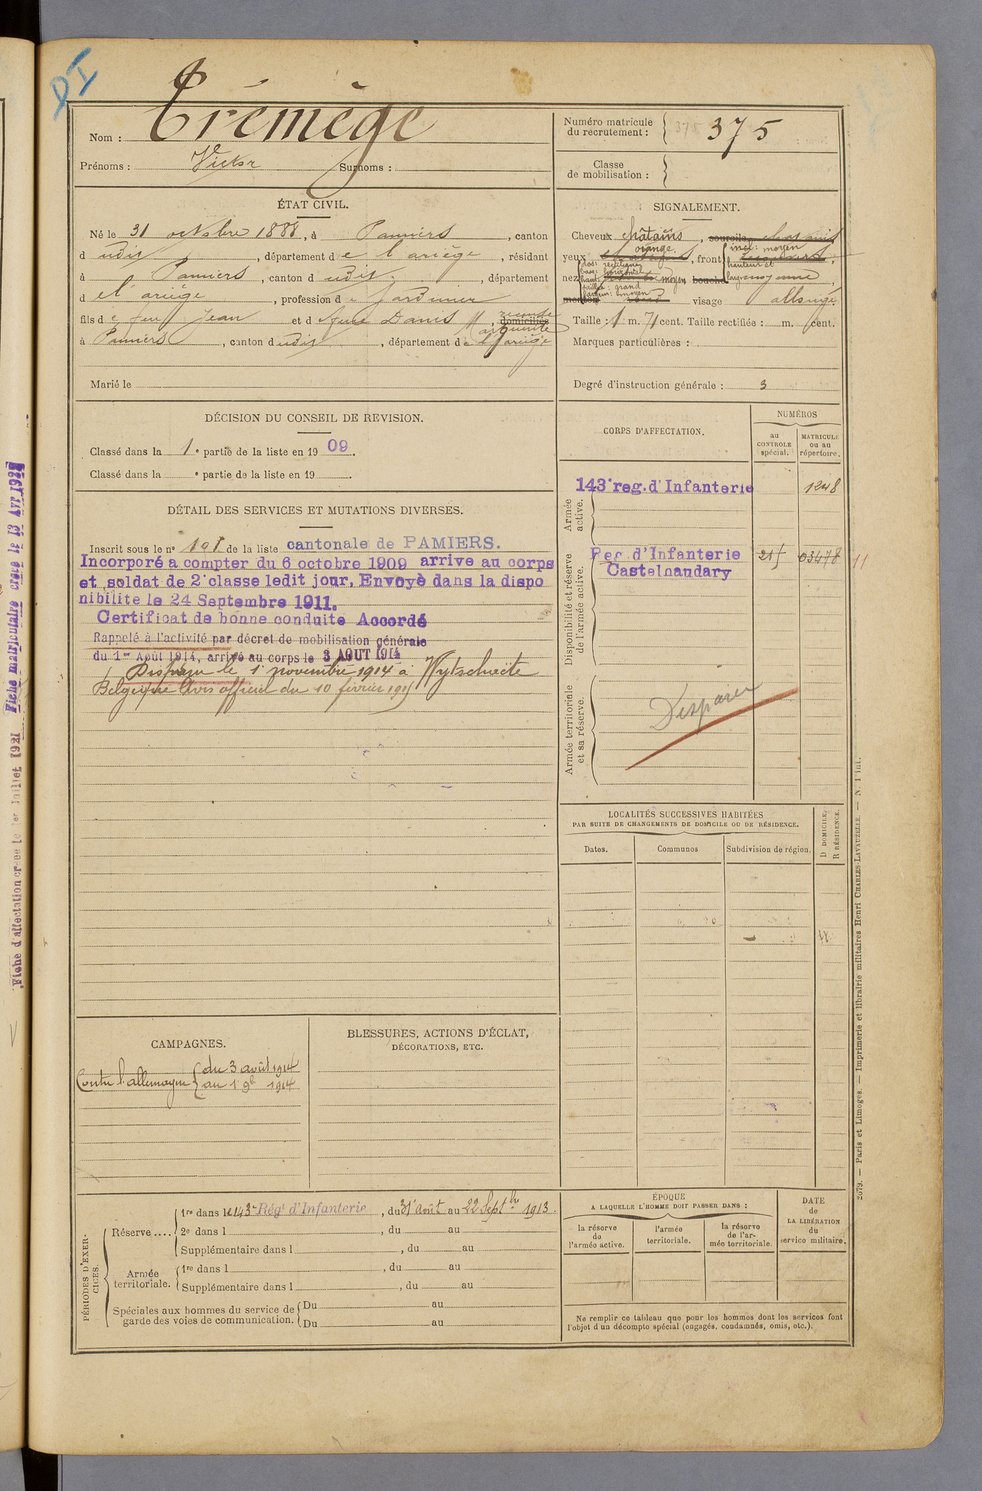 DI
Nom : Trémège
Prénoms : Victor Surnoms :
Numéro matricule du recrutement : 375
Classe de mobilisation :
ÉTAT CIVIL.
Né le 31 octobre 1888, à Pamiers, canton
dudit, département de l'ariège, résidant
à Pamiers, canton dudit, département
de l'ariège, profession de Jardinier
fils de feu Jean et de feue Danis Marguerite domiciliés
à Pamiers, canton dudit, département de l'ariège
Marié le
SIGNALEMENT.
Cheveux châtains, sourcils
yeux orange, front incl: moyen
hauteur et
nez dos: rectiligne
base: horizontal
moyen bouche
saillie: grand
visage allongé
Taille : 1 m. 71 cent. Taille rectifiée : m. cent.
Marques particulières :
Degré d'instruction générale : 3
DÉCISION DU CONSEIL DE REVISION.
Classé dans la 1e partie de la liste en 1909.
Classé dans la e partie de la liste en 19 .
DÉTAIL DES SERVICES ET MUTATIONS DIVERSES.
Inscrit sous le n° 101 de la liste cantonale de PAMIERS.
Incorporé a compter du 6 octobre 1909 arrive au corps
et soldat de 2e classe ledit jour. Envoyé dans la dispo
nibilite le 24 Septembre 1911.
Certificat de bonne conduite Accordé
Rappelé à l'activité par décret de mobilisation générale
du 1er Août 1914, arrivé au corps le 3 AOUT 1914
Disparu le 1er novembre 1914 à Wytschaete
Belgique Avis officiel du 10 février 1915
CORPS D'AFFECTATION.
NUMÉROS
au CONTROLE spécial.
MATRICULE ou au répertoire.
Armée active.
143e reg. d'Infanterie 1248
Disponibilité et réserve de l'armée active.
Reg. d'Infanterie 03478 11
Castelnaudary
Armée territoriale et sa réserve.
Disparu
LOCALITÉS SUCCESSIVES HABITÉES
PAR SUITE DE CHANGEMENTS DE DOMICILE OU DE RÉSIDENCE.
Dates. Communes Subdivision de région. D DOMICILE. R RÉSIDENCE.
CAMPAGNES.
Contre l'allemagne { du 3 août 1914
au 1 9bre 1914
BLESSURES, ACTIONS D'ÉCLAT,
DÉCORATIONS, ETC.
PÉRIODES D'EXERCICES.
Réserve .... 1re dans le 143e Régt d'Infanterie, du 31 Août au 22 Septbre 1913.
2e dans l , du au
Supplémentaire dans l , du au
Armée territoriale. 1re dans l , du au
Supplémentaire dans l , du au
Spéciales aux hommes du service de garde des voies de communication. Du au
Du au
ÉPOQUE
A LAQUELLE L'HOMME DOIT PASSER DANS :
la réserve de l'armée active.
l'armée territoriale.
la réserve de l'armée territoriale.
DATE de LA LIBÉRATION du service militaire.
Ne remplir ce tableau que pour les hommes dont les services font
l'objet d'un décompte spécial (engagés, condamnés, omis, etc.).
2079. — Paris et Limoges. — Imprimerie et librairie militaires Henri CHARLES-LAVAUZELLE. — N. 1 int.
Fiche d'affectation créée le 1er Juillet 1921 Fiche matriculaire créée le 13 Avr. 1928